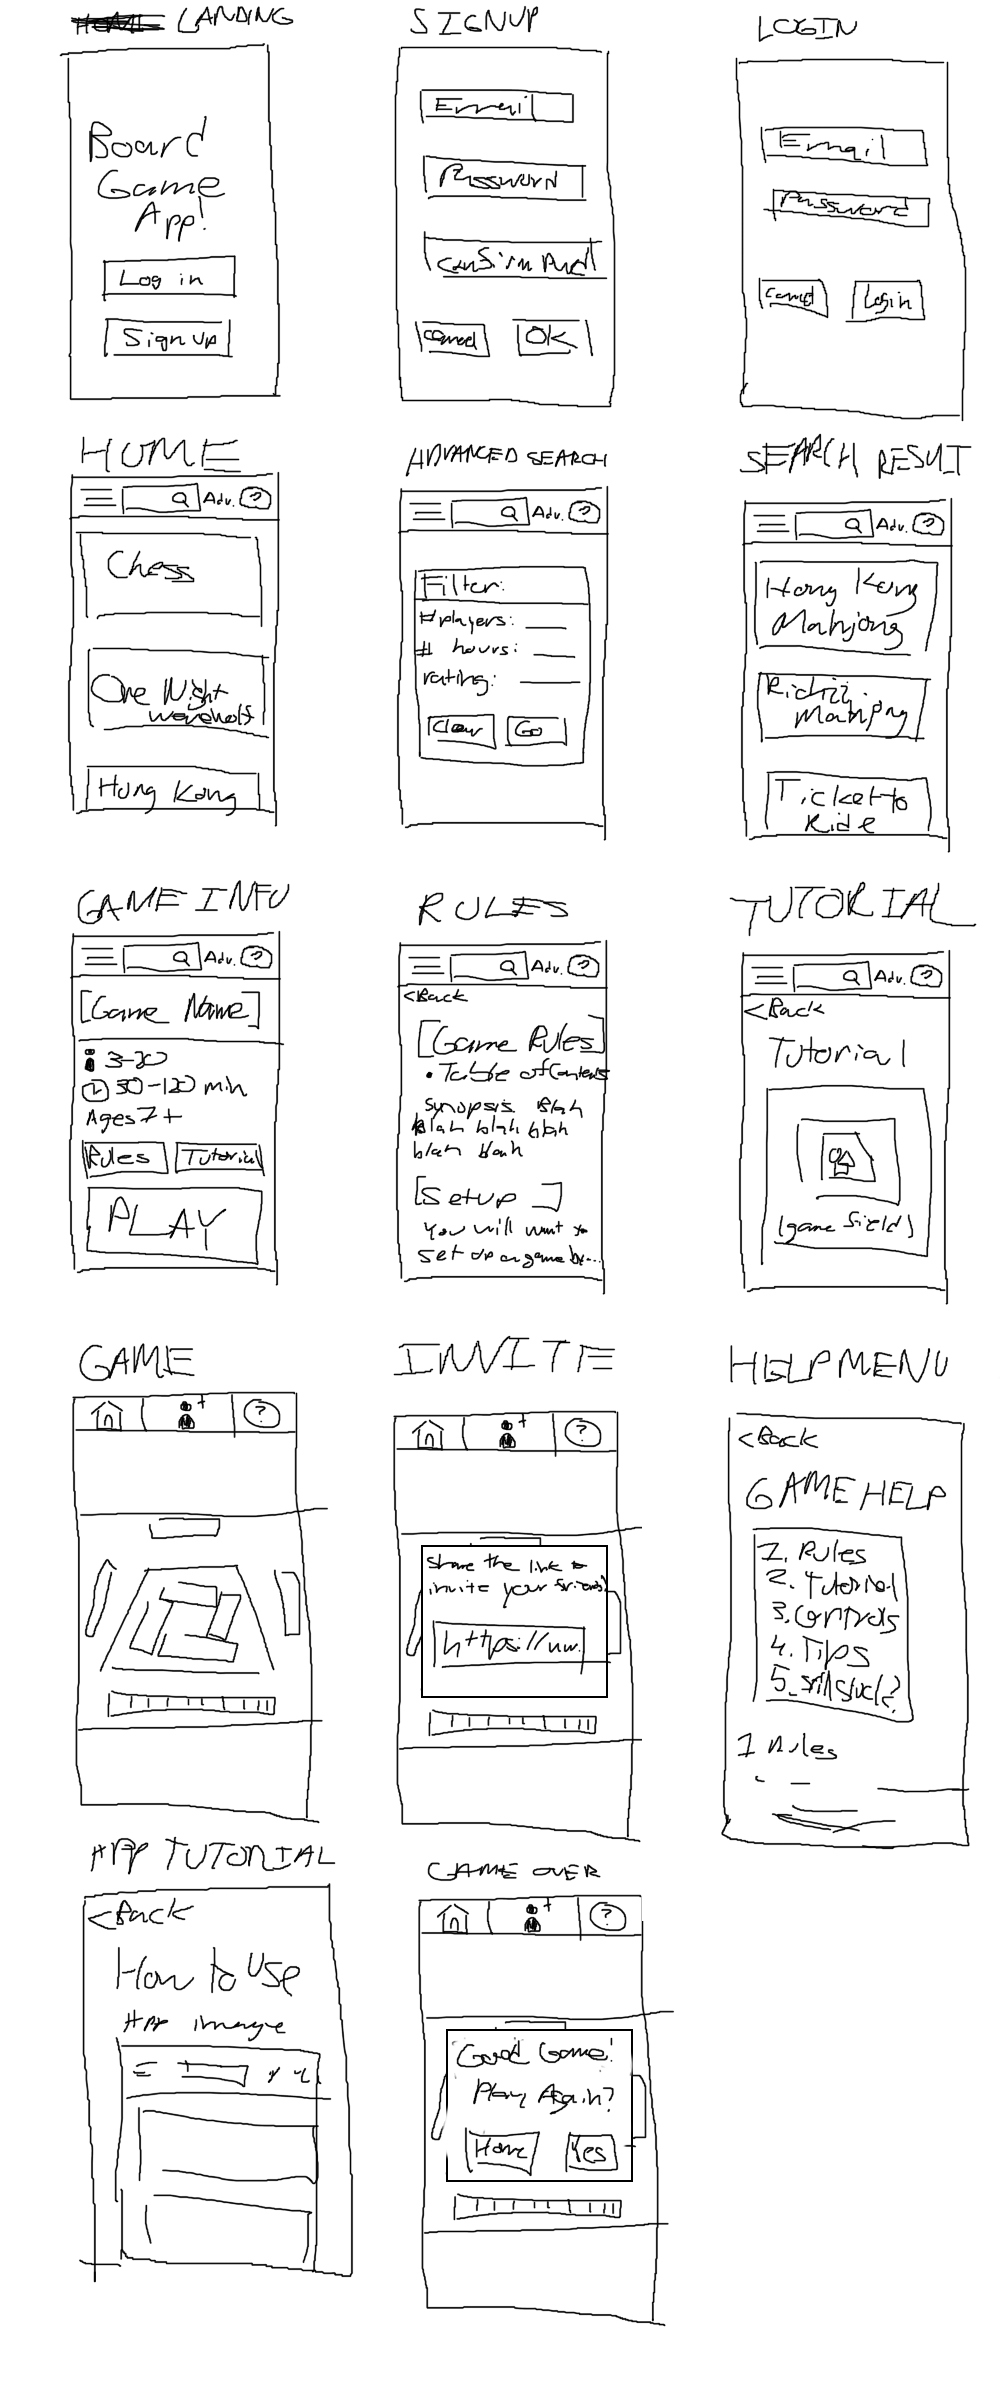 LANDING
Board
Game
App!
Log in
Sign up
SIGNUP
Email
Password
Confirm Pwd
Cancel
OK
LOGIN
Email
Password
Cancel
Login
HOME
Adv. ?
Chess
One Night
Werewolf
Hong Kong
ADVANCED SEARCH
Adv. ?
Filter:
# players:
# hours:
rating:
Clear
Go
SEARCH RESULT
Adv. ?
Hong Kong
Mahjong
Riichi
Mahjong
Ticket to
Ride
GAME INFO
Adv. ?
[Game Name]
3-20
30-120 min
Ages 7+
Rules
Tutorial
PLAY
RULES
Adv. ?
<Back
[Game Rules]
• Table of Contents
Synopsis Blah
Blah blah blah
blah blah
[Setup ]
You will want to
set up a game by...
TUTORIAL
Adv. ?
<Back
Tutorial
(game field)
GAME
+
?
INVITE
+
?
Share the link to
invite your friends!
https://ww.
HELP MENU
<Back
GAME HELP
1. Rules
2. Tutorial
3. Controls
4. Tips
5. Still stuck?
1 Rules
APP TUTORIAL
<Back
How to Use
App image
GAME OVER
+
?
Good Game!
Play Again?
Home
Yes